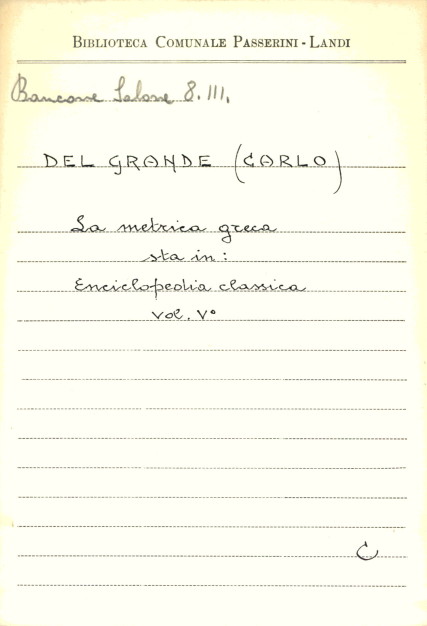 BIBLIOTECA COMUNALE PASSERINI-LANDI
Bancone Salone 8.III.
DEL GRANDE (CARLO)
La metrica greca
sta in:
Enciclopedia classica
vol. V°
C